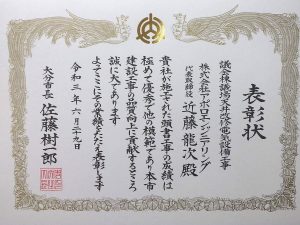 表彰状
議会棟議場天井改修電気設備工事
株式会社アポロエンジニアリング
代表取締役 近藤龍次殿
貴社が施工された頭書工事の成績は
極めて優秀で他の模範であり本市
建設工事の品質向上に貢献するところ
誠に大であります
よってここにその栄誉をたたえ表彰します
令和三年六月二十九日
大分市長 佐藤樹一郎